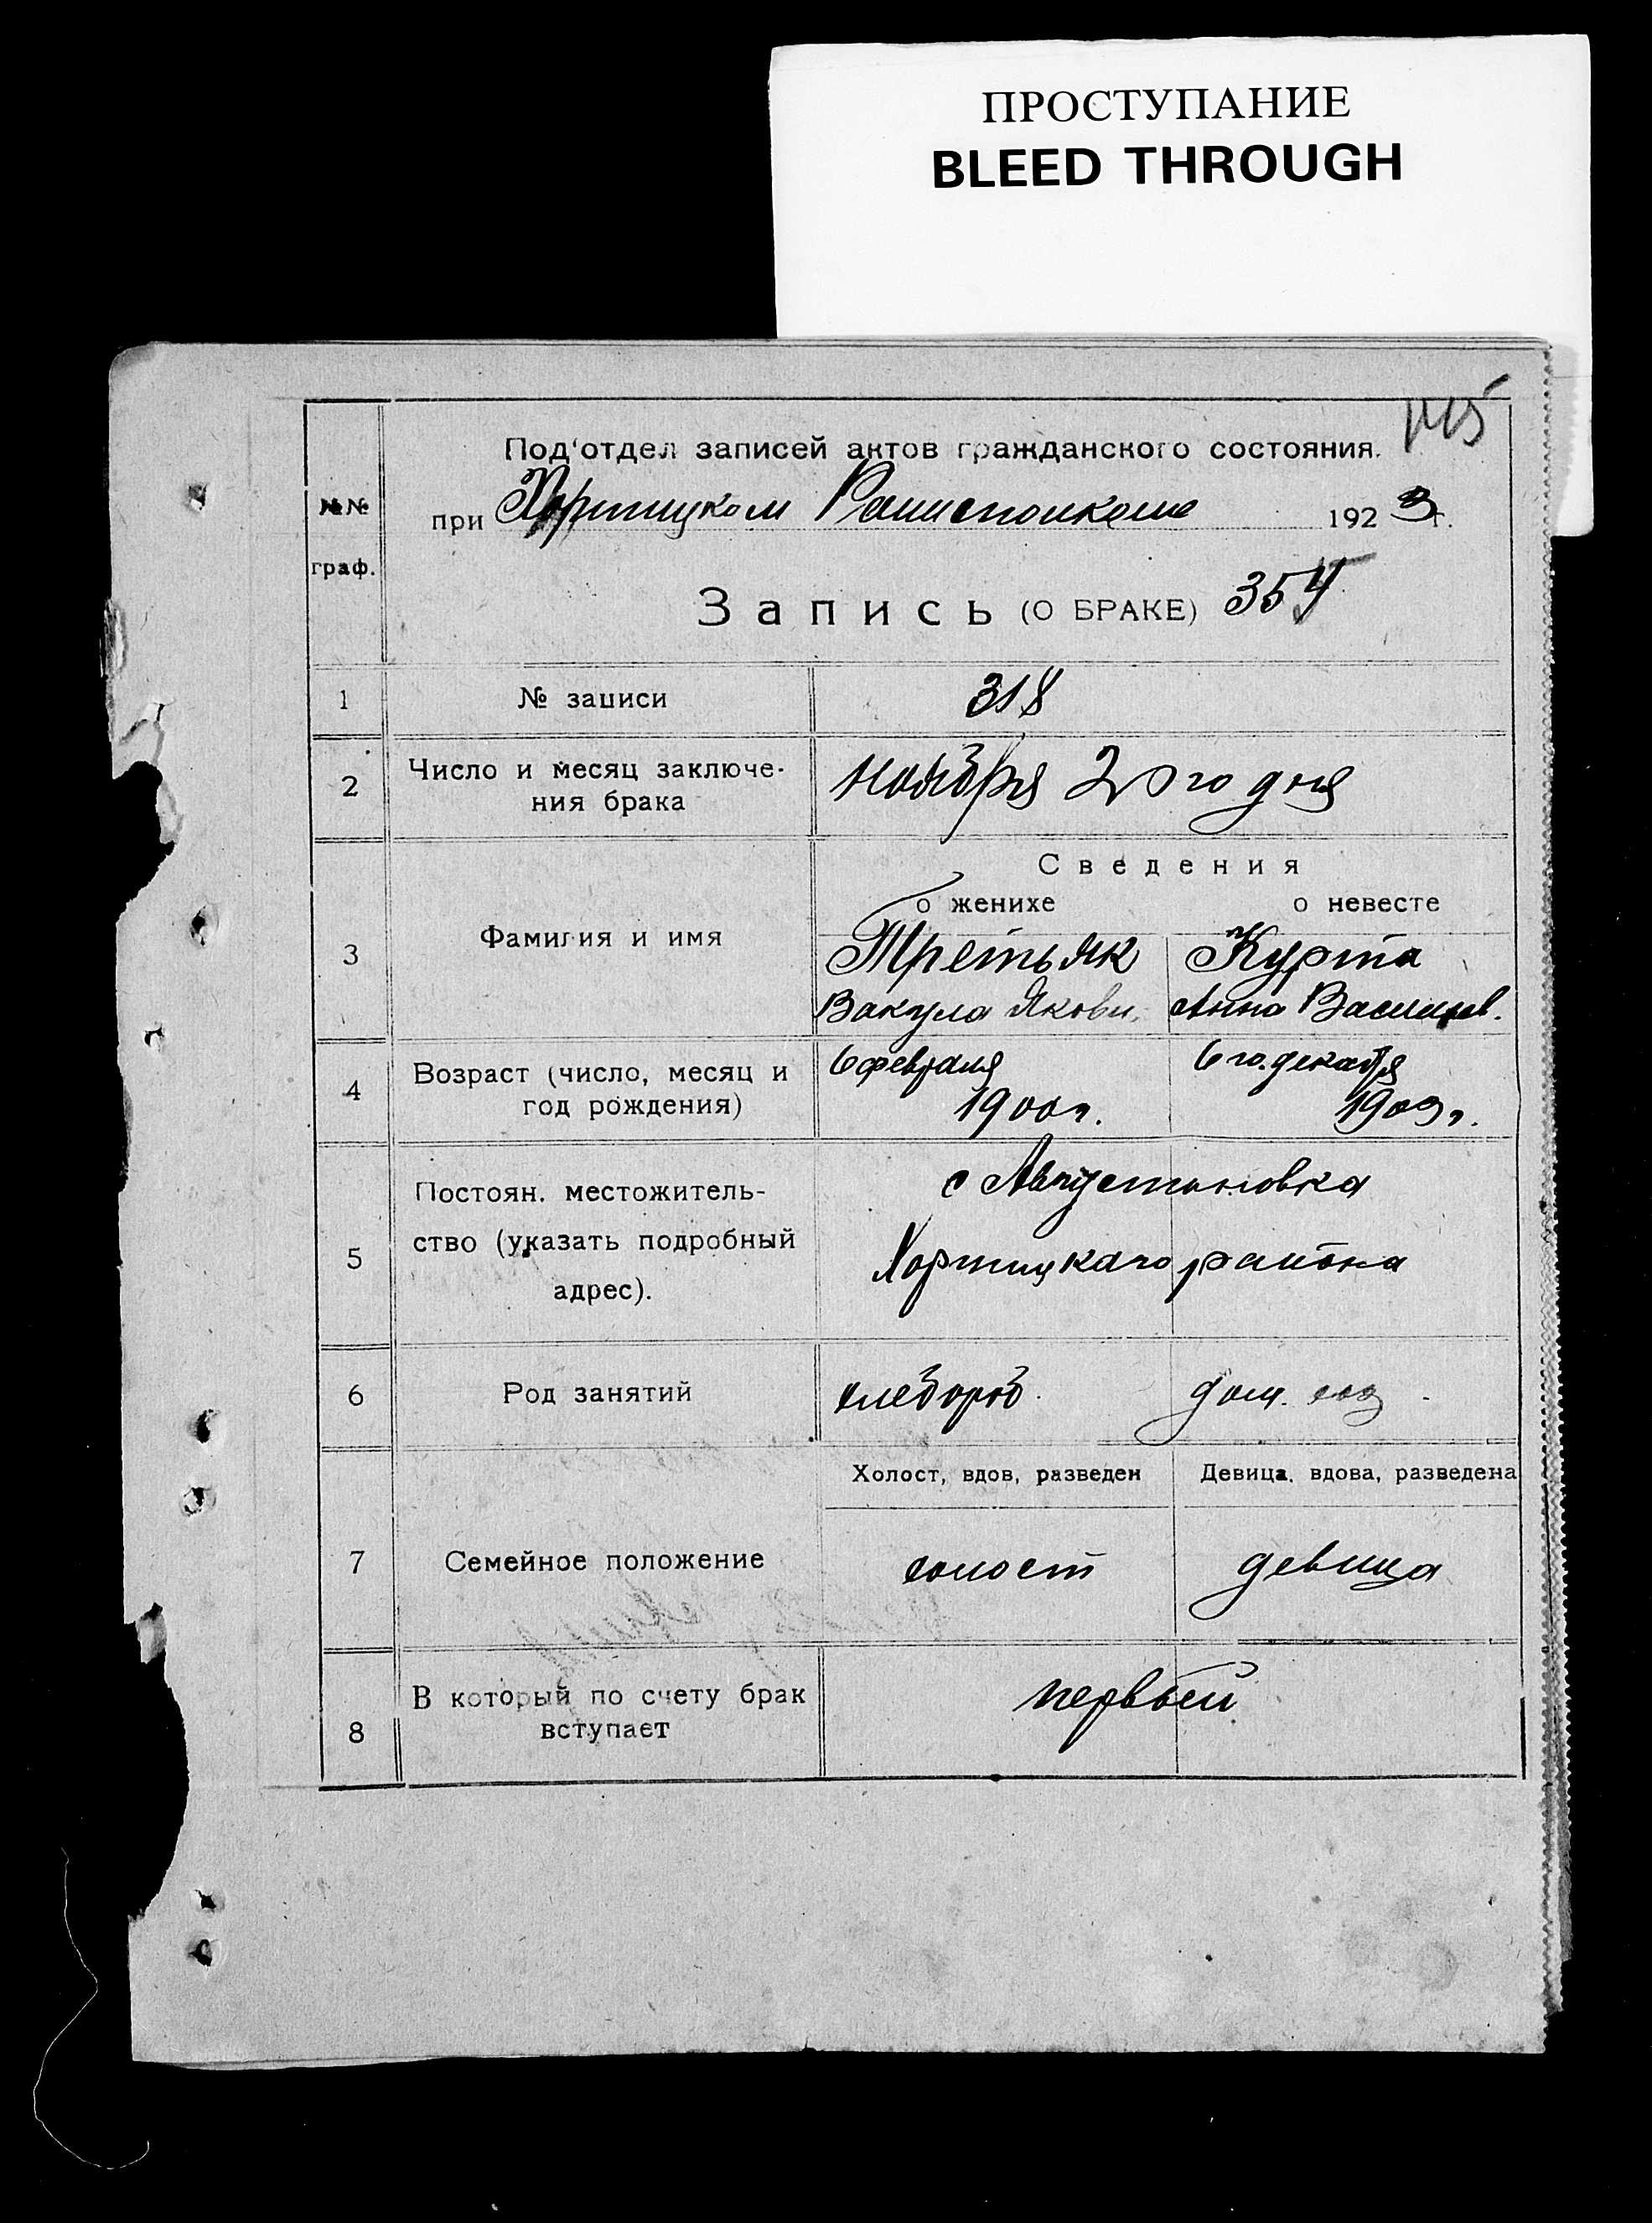 ПРОСТУПАНИЕ
BLEED THROUGH
Под'отдел записей актов гражданского состояния.
№№
при Хортицком Райисполкоме 1923 г.
граф.
Запись (О БРАКЕ) 354
1 № записи 318
2 Число и месяц заключе-
ния брака ноября 20го дня
Сведения
о женихе о невесте
3 Фамилия и имя Третьяк Курта
Вакула Якови. Анна Васильев.
4 Возраст (число, месяц и 6 февраля 6го декабря
год рождения) 1900 г. 1903 г.
5 Постоян. местожитель- с Августиновка
ство (указать подробный Хортицкаго района
адрес).
6 Род занятий хлебороб. дом. хоз.
Холост, вдов, разведен Девица, вдова, разведена
7 Семейное положение холост девица
8 В который по счету брак первый
вступает